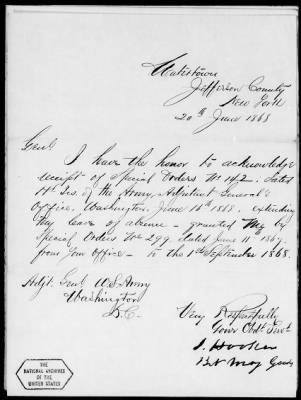 Watertown
Jefferson County
New York
20th June 1868
Genl
I have the honor to acknowledge
receipt of Special Orders No 142. Dated
Hd Qrs. of the Army, Adjutant General's
Office, Washington, June 1868. extending
my leave of absence - granted me by
Special Orders No 299 dated June 11th 1867.
from your office - to the 1st September 1868.
Adjt. Genl U.S. Army
Washington
D.C.
Very Respectfully
Your Obdt Servt
J. Hooker
Bvt Maj Genl
THE
NATIONAL ARCHIVES
OF THE
UNITED STATES